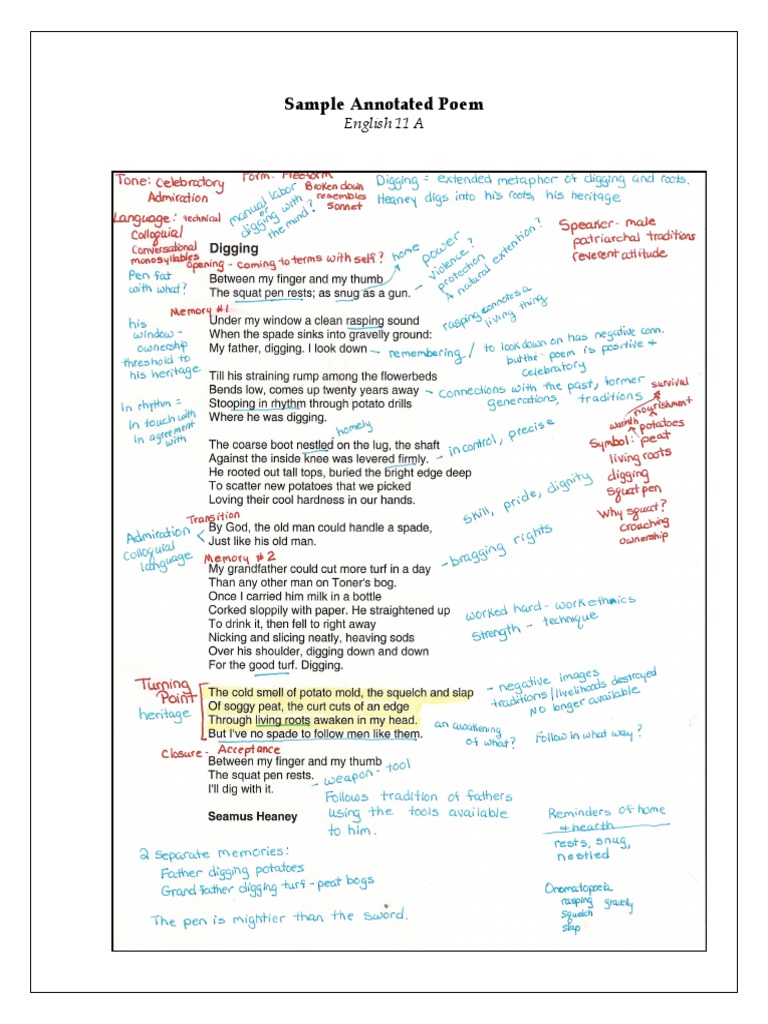 Sample Annotated Poem
English 11 A
Tone: Celebratory
Admiration
Form: Freeform
Broken down
resembles
Sonnet
Digging = extended metaphor of digging and roots.
Heaney digs into his roots, his heritage
manual labor
or
digging with
the mind?
Language: technical
Colloquial
Conversational
monosyllables
Speaker - male
patriarchal traditions
reverent attitude
Digging
opening - coming to terms with self?
home
power
violence?
protection
A natural extention?
Pen fat
with what?
Between my finger and my thumb
The squat pen rests; as snug as a gun.
Memory #1
rasping connotes a
living thing
his
window -
ownership
threshold to
his heritage
Under my window a clean rasping sound
When the spade sinks into gravelly ground:
My father, digging. I look down
remembering / to look down on has negative conn.
but the poem is positive +
celebratory
Till his straining rump among the flowerbeds
Bends low, comes up twenty years away
Stooping in rhythm through potato drills
Where he was digging.
connections with the past, former
generations, traditions
In rhythm =
In touch with
In agreement
with
survival
nourishment
warmth potatoes
Symbol: peat
living roots
digging
squat pen
Why squat?
crouching
ownership
homely
The coarse boot nestled on the lug, the shaft
Against the inside knee was levered firmly.
He rooted out tall tops, buried the bright edge deep
To scatter new potatoes that we picked
Loving their cool hardness in our hands.
in control, precise
Transition
skill, pride, dignity
Admiration
Colloquial
language
By God, the old man could handle a spade,
Just like his old man.
Memory #2
bragging rights
My grandfather could cut more turf in a day
Than any other man on Toner's bog.
Once I carried him milk in a bottle
Corked sloppily with paper. He straightened up
To drink it, then fell to right away
Nicking and slicing neatly, heaving sods
Over his shoulder, digging down and down
For the good turf. Digging.
worked hard - work ethnics
Strength - technique
Turning
Point
heritage
The cold smell of potato mold, the squelch and slap
Of soggy peat, the curt cuts of an edge
Through living roots awaken in my head.
But I've no spade to follow men like them.
negative images
traditions/livelihoods destroyed
No longer available
an awakening
of what?
Follow in what way?
Closure - Acceptance
Between my finger and my thumb
The squat pen rests.
I'll dig with it.
weapon - tool
Seamus Heaney
Follows tradition of fathers
using the tools available
to him.
Reminders of home
+ hearth
rests, snug,
nestled
2 Separate memories:
Father digging potatoes
Grand father digging turf - peat bogs
The pen is mightier than the sword.
Onomatopoeia
rasping gravelly
squelch
slap